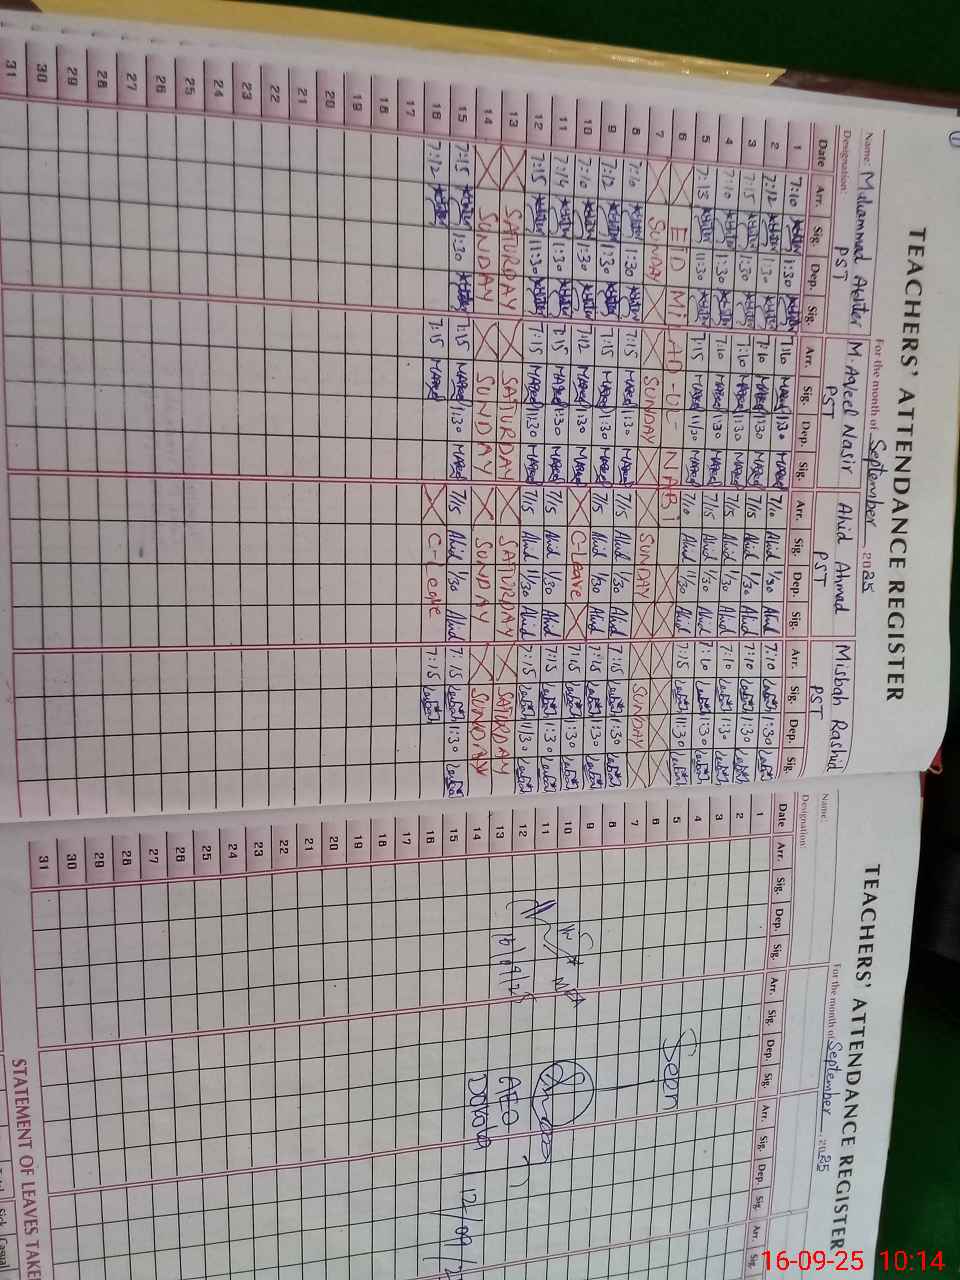 TEACHERS' ATTENDANCE REGISTER
For the month of September 2025
Name: Muhammad Akhter M. Aqeel Nasir Ahid Ahmad Misbah Rashid
Designation: PST PST PST PST
Date Arr. Sig. Dep. Sig. Arr. Sig. Dep. Sig. Arr. Sig. Dep. Sig. Arr. Sig. Dep. Sig.
1 7:10 1:30 7:10 1:30
2 7:12 1:30 7:10 1:30 7/10 Ahid 1/30 Ahid 7:10 1:30
3 7:15 1:30 7:10 1:30 7/15 Ahid 1/30 Ahid 7:10 1:30
4 7:10 1:30 7:10 1:30 7/15 Ahid 1/30 Ahid 7:10 1:30
5 7:13 11:30 7:15 11/30 7/10 Ahid 11/30 Ahid 7:15 11:30
6 EID MILAD-UL-NABI
7 SUNDAY SUNDAY SUNDAY SUNDAY
8 7:10 1:30 7:15 1:30 7/15 Ahid 1/30 Ahid 7:15 1:30
9 7:12 1:30 7:15 1:30 7/15 Ahid 1/30 Ahid 7:15 1:30
10 7:10 1:30 7:12 1:30 C-Leave 7:15 1:30
11 7:14 1:30 7:15 1:30 7/15 Ahid 1/30 Ahid 7:15 1:30
12 7:15 11:30 7:15 11:30 7/15 Ahid 11/30 Ahid 7:15 11/30
13 SATURDAY SATURDAY SATURDAY SATURDAY
14 SUNDAY SUNDAY SUNDAY SUNDAY
15 7:15 1:30 7:15 1:30 7/15 Ahid 1/30 Ahid 7:15 1:30
16 7:12 7:15 C-Leave 7:15
17
18
19
20
21
22
23
24
25
26
27
28
29
30
31
TEACHERS' ATTENDANCE REGISTER
For the month of September 2025
Name:
Designation:
Date Arr. Sig. Dep. Sig. Arr. Sig. Dep. Sig. Arr. Sig. Dep. Sig. Arr.
1
2
3
4
5 Seen
6
7
8
9
10 MEA
11
12
13 AEO
14
15
16
17
18
19
20
21
22
23
24
25
26
27
28
29
30
31
STATEMENT OF LEAVES TAKE
Sick Casual
16-09-25 10:14